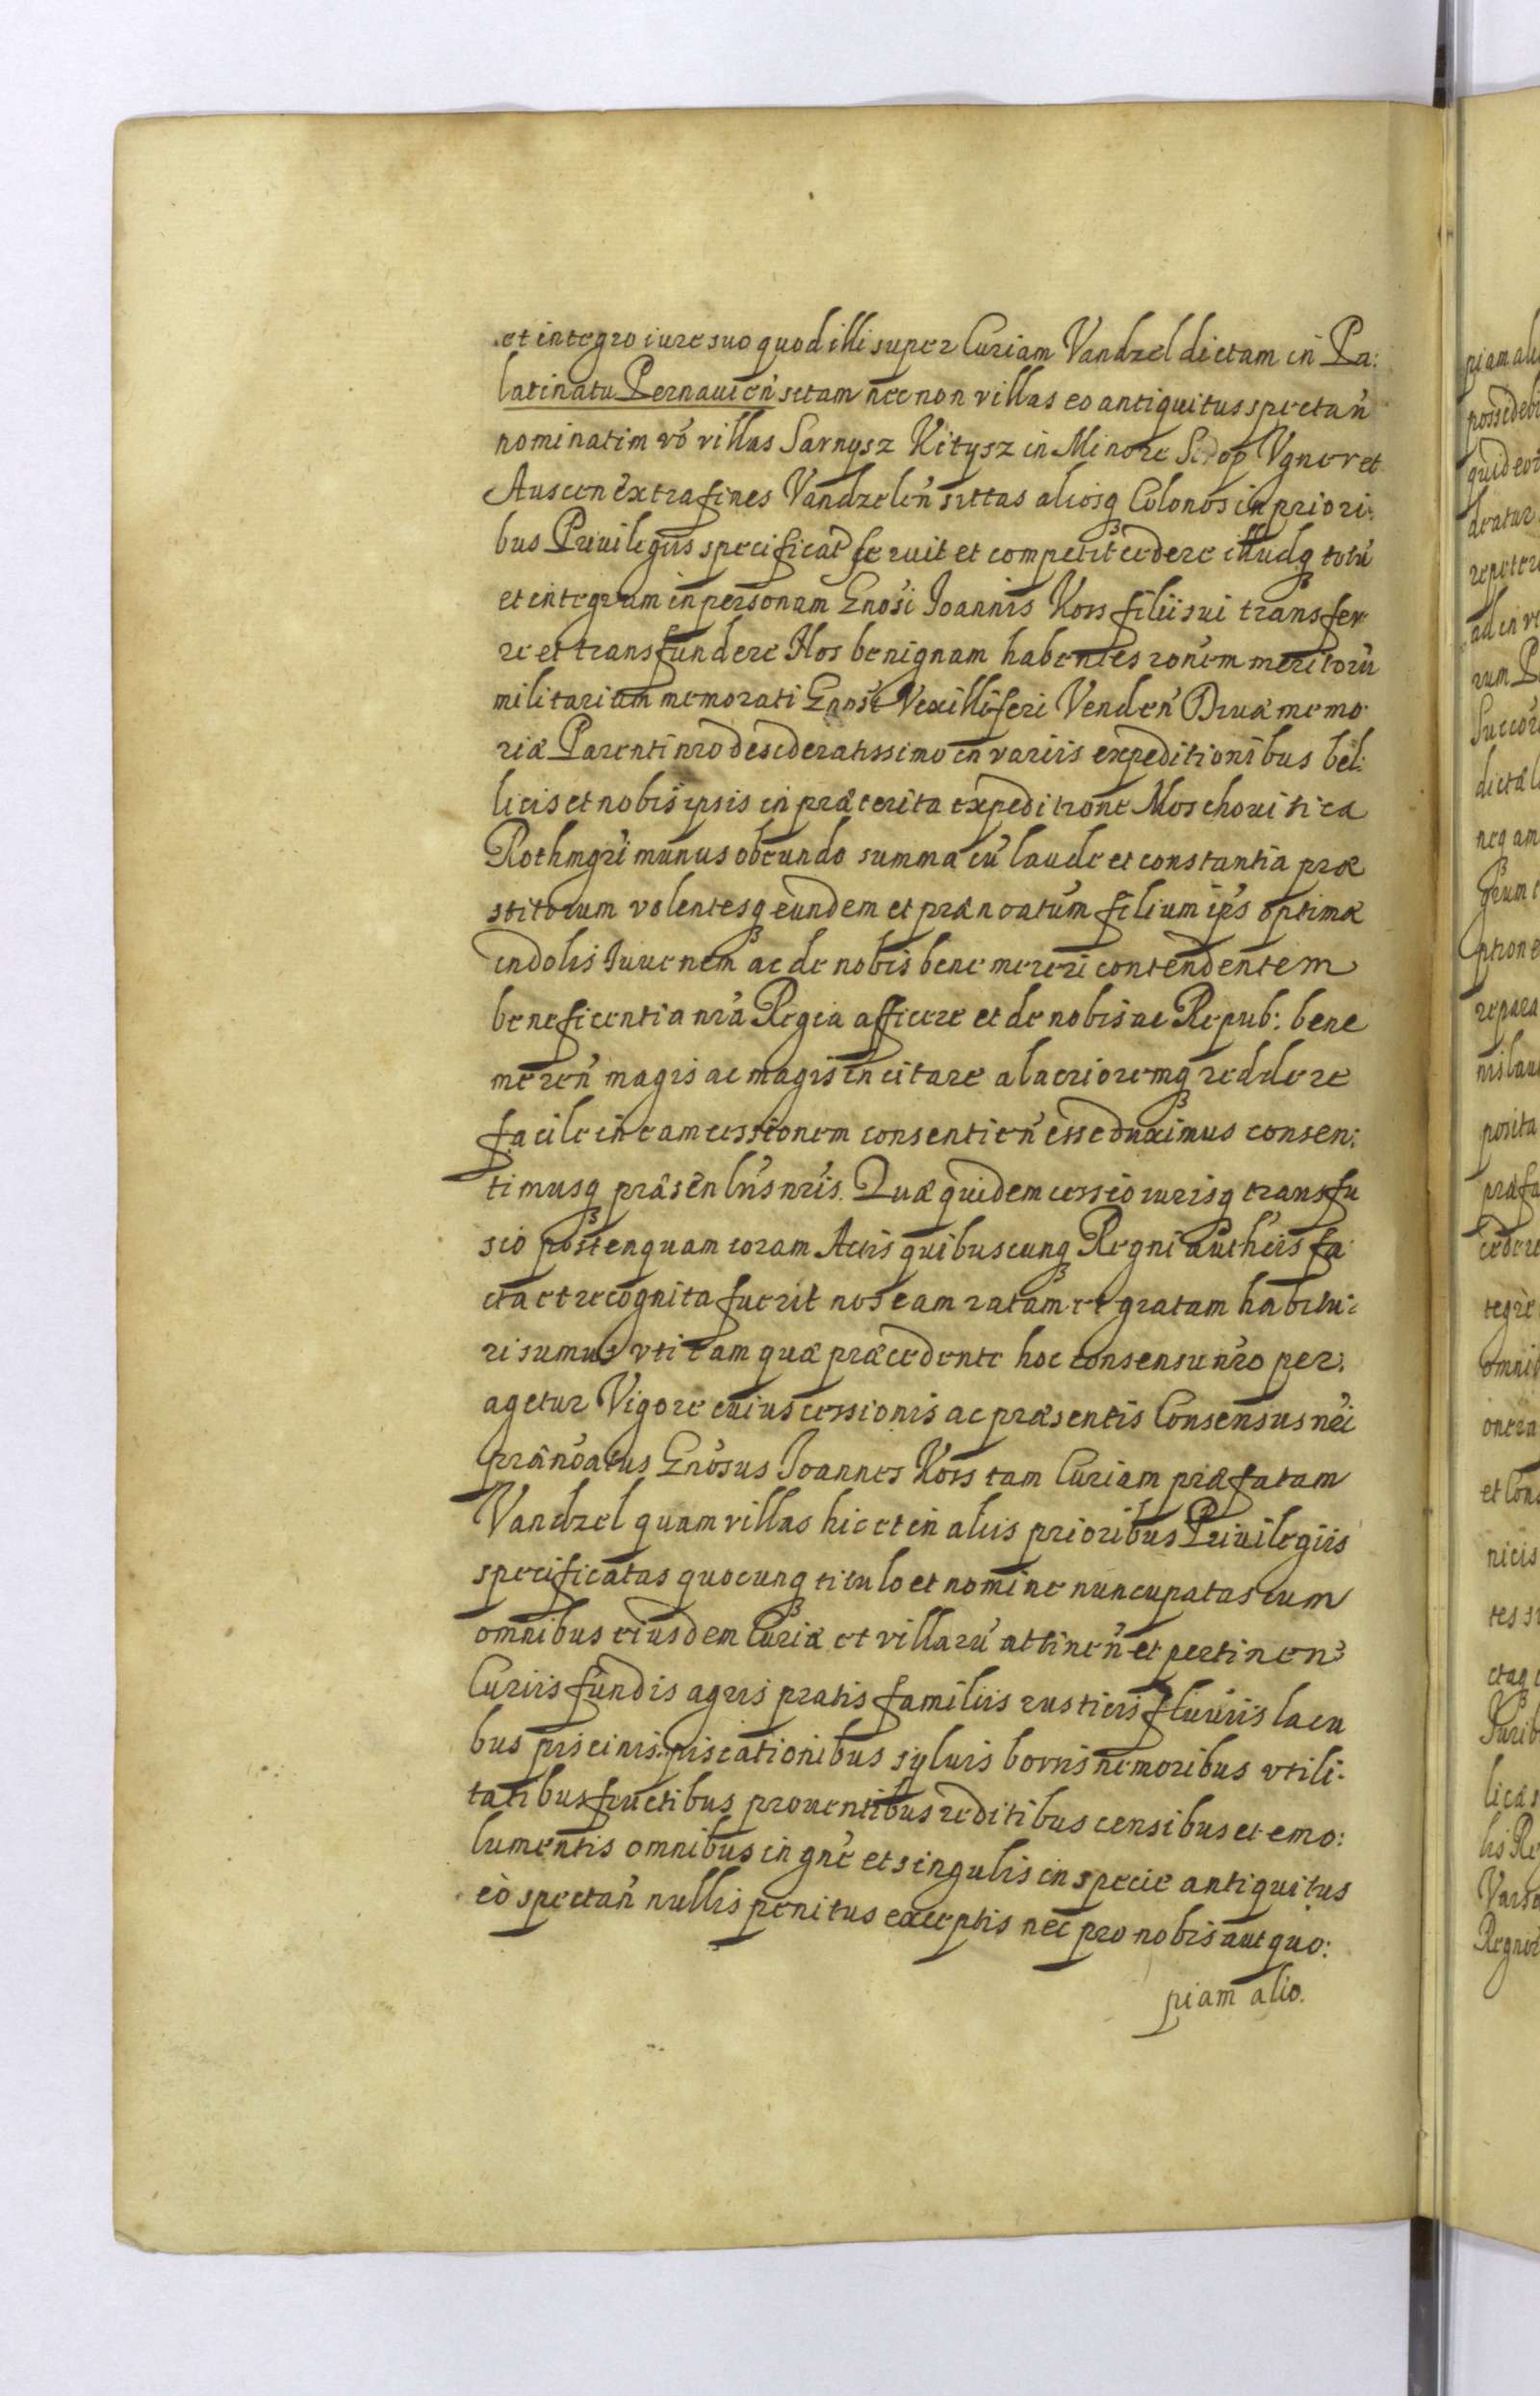 et integro iure suo quod illi super Curiam Vandzel dictam in Pa:
latinatu Pernauien̄ sitam nec non villas eo antiquitus spectan̄
nominatim vō villas Sarnysz Kitysz in Minore Vgner et
Auscen extra fines Vandzelen̄ sittas aliosq Colonos in priori:
bus Priuilegiis specificat seruit et competit cedere illudq totū
et integrum in personam Gnosi Joannis Koss filii sui transfer
re et transfundere Nos benignam habentes ronem meritorū
militarium memorati Gnosi Vexilliferi Venden̄ Diuæ memo
riæ Parenti nro desideratissimo in variis expeditionibus bel:
licis et nobis ipsis in præterita expeditione Moschouitica
Rothmgri munus obeundo summa cū laude et constantia præ
stitorum volentesq eundem et prænoatum filium ips optimæ
indolis Juuenem ac de nobis bene mereri contendentem
beneficentia nra Regia afficere et de nobis ac Repub: bene
meren̄ magis ac magis incitare alacrioremq reddere
facile in eam cessionem consentien̄ esse duximus consen:
timusq præsen lris nris. Quæ quidem cessio iurisq transfu
sio postenquam coram Actis quibuscunq Regni authcis fa
cta et recognita fuerit nos eam ratam et gratam habitu:
ri sumus vti eam quæ præcedente hoc consensu nro per:
agetur Vigore cuius cessionis ac præsentis Consensus nri
prænoatus Gnosus Joannes Koss tam Curiam præfatam
Vandzel quam villas hic et in aliis prioribus Priuilegiis
specificatas quocunq titulo et nomine nuncupatas cum
omnibus eiusdem Curiæ et villarū attinen̄ et pertinen̄
Curiis fundis agris pratis familiis rusticis fluuiis lacu
bus piscinis piscationibus syluis borris nemoribus vtili:
tatibus fructibus prouentibus reditibus censibus et emo:
lumentis omnibus in gne et singulis in specie antiquitus
eò spectan̄ nullis penitus exceptis nec pro nobis aut quo:
piam alio.